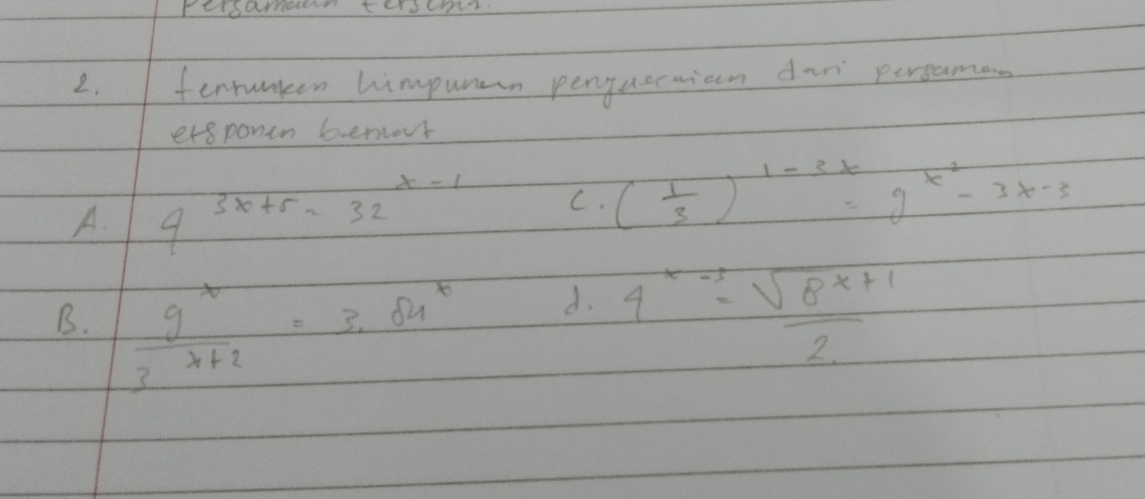 Persamaan tersebut.
2. Tentunken himpunan penyelesaian dari persaman
eksponen berikut
A. 4^{3x+5} = 32^{x-1} C. (1/3)^{1-3x} = 9^{x^2-3x-3}
B. 9^x / 3^{x+2} = 3. 84^x d. 4^{x-3} = √8^{x+1} / 2